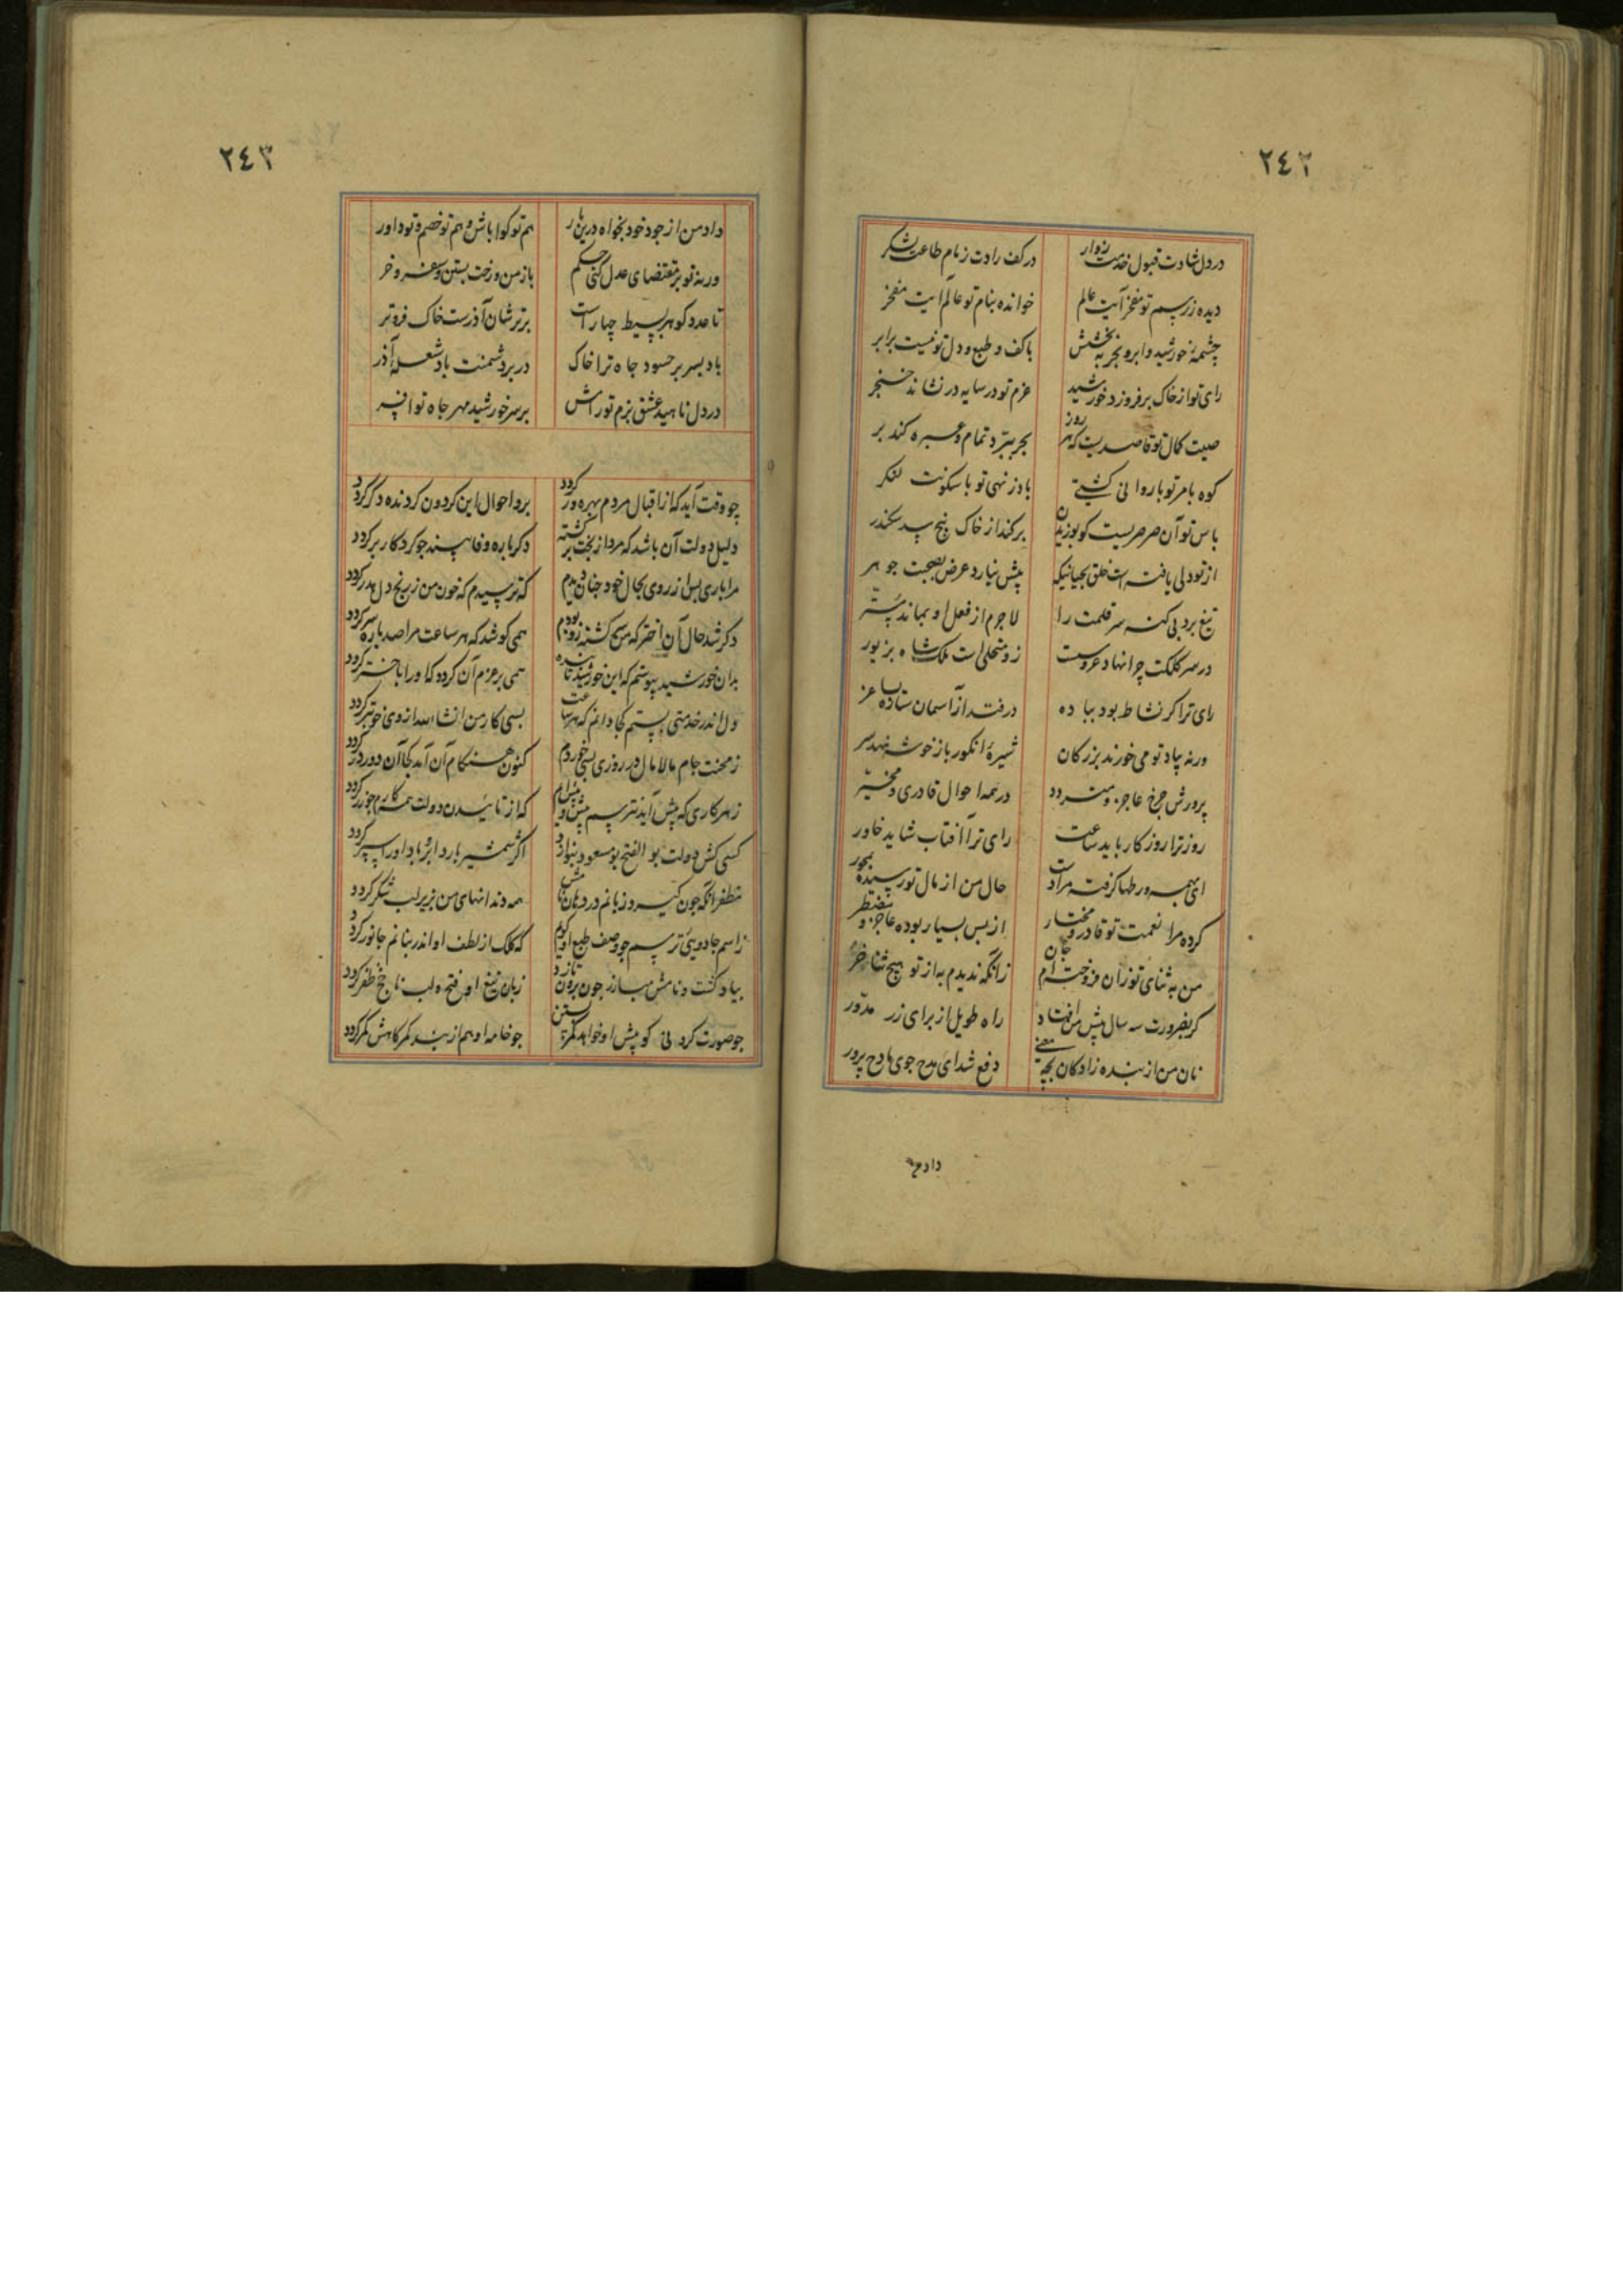 ٢٤٢
در دل شادت قبول خدمت زوار در کف رادت زمام طاعت لشکر
دیده ز رسم تو مفخر آیت عالم خوانده بنام تو عالم آیت مفخر
چشمهٔ خورشید و ابر و بحر به بخشش با کف و طبع و دل تو نیست برابر
رای تو از خاک بر فروزد خورشید عزم تو در سایه در نشاند خنجر
صیت کمال تو قاصدیست که هر روز بحر ببرد تمام و عبره کند بر
کوه بامر تو با روانی کشتی باد ز نهی تو با سکونت لنکر
باس تو آن صرصریست کو بوزیدن برکند از خاک بیخ سد سکندر
از تو دلی یافته است خلق بجیانیکه پیش نیارد عرض بصحبت جوهر
تیغ برد بی کنه سر قلمت را لاجرم از فعل او بماند پستر
در سر کلکت چرا نهاد عروست زو متحلی است ملک شاه بزیور
رای ترا کر نشاط بود بباده در فتد از آسمان ستاده بساغر
ورنه بیاد تو می خورند بزرکان شیرهٔ انکور باز خوشه نهد سر
پرورش چرخ عاجز و متردد در همه احوال قادری و مخیر
روز ترا روزکار باید ساعت رای ترا آفتاب شاید خاور
ای بهمه ورطها کرفته مرا دست حال من از مال تو رسیده بمحور
کرده مرا نعمت تو قادر و مختار از بس بسیار بوده عاجز و مضطر
من به ثنای تو زان فروخته ام جان زانکه ندیدم به از تو هیچ ثنا خر
کر بضرورت سه سال پیش من افتاد راه طویل از برای زر مدور
نان من از بنده زادکان بچه معنی دفع شد ای مدح جوی مادح پرور
داد من
٢٤٣
داد من از جود خود بخواه درین بار هم تو کوا باش و هم تو خصم و تو داور
ورنه تو بر مقتضای عدل کنی حکم باز من و رخت بستن و سفر و خر
تا عدد کوهر بسیط چهار است برتر شان آذرست خاک فروتر
باد بسر بر حسود جاه ترا خاک در بر دشمنت باد شعلهٔ آذر
در دل ناهید عشق بزم تو رامش بر سر خورشید مهر جاه تو افسر
چو وقت آید که از اقبال مردم بهره ور کردد برد احوال این کردون کردنده دکر کردد
دلیل دولت آن باشد که مرد از بخت برکشته دکرباره وفا بیند چو کردکار بر کردد
مرا باری بس از روی بحال خود چنان دیدم که ترسیدم که خون من ز رنج دل هدر کردد
دکر شد حال آن اختر که من سرکشته زو بودم همی کوشد که هر ساعت مرا صد باره سر کردد
بدان خورشید پیوستم که این خورشید تابنده همی بر عزم آن کردد که او را باختر کردد
دل اندر خدمتی بستم کجا دانم که هر ساعت بسی کار من انشاالله از وی خوبتر کردد
ز محنت جام مالامال در روزی بسی خوردم کنون هنکام آن آمد کجا آن دور در کردد
ز هر کاری که پیش آید نترسم پیش و بیش ایرام که از تائید آن دولت همه کارم چو زر کردد
کسی کش دولت بو الفتح بو مسعود بنوازد اکر شمشیر بارد ابر و باد او را سپر کردد
مظفر آنکه چون کیرد زبانم در دهان نامش همه دندانهای من بزیر لب شکر کردد
ز اسم جادوئی ترسم چو وصف طبع او کویم که کلک از لطف او اندر بنانم جانور کردد
بیاد کفت و نامش مبارز چون برون تازد زبان تیغ او فتح و لب نا چخ ظفر کردد
چو صورت کرد نی کو پیش او خواهد کمر بستن چو خامه او هم از بند کمر کاهش کمر کردد